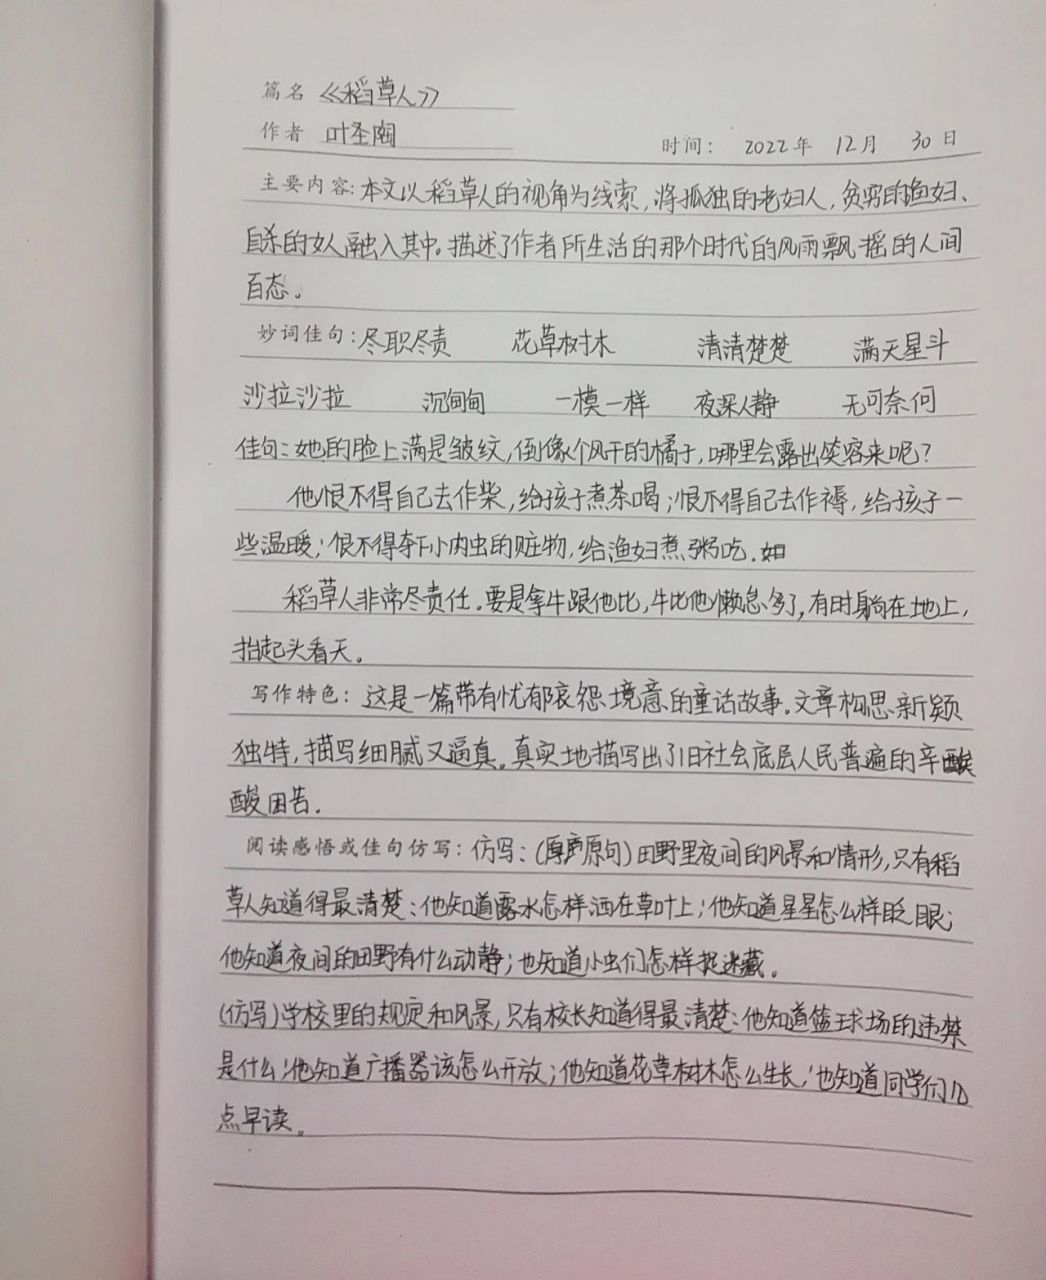 篇名 《稻草人》
作者 叶圣陶
时间: 2022年 12月 30日
主要内容:本文以稻草人的视角为线索,将孤独的老妇人,贫穷的渔妇、
自杀的女人融入其中。描述了作者所生活的那个时代的风雨飘摇的人间
百态。
妙词佳句:尽职尽责 花草树木 清清楚楚 满天星斗
沙拉沙拉 沉甸甸 一模一样 夜深人静 无可奈何
佳句:她的脸上满是皱纹,倒像个风干的橘子,哪里会露出笑容来呢?
他恨不得自己去作柴,给孩子煮茶喝;恨不得自己去作褥,给孩子一
些温暖;恨不得夺下小肉虫的赃物,给渔妇煮粥吃.如
稻草人非常尽责任.要是拿牛跟他比,牛比他懒怠多了,有时躺在地上,
抬起头看天。
写作特色:这是一篇带有忧郁哀怨境意的童话故事.文章构思新颖
独特,描写细腻又逼真.真实地描写出了旧社会底层人民普遍的辛
酸困苦.
阅读感悟或佳句仿写:仿写:(原句)田野里夜间的风景和情形,只有稻
草人知道得最清楚:他知道露水怎样洒在草叶上;他知道星星怎么样眨眼;
他知道夜间的田野有什么动静;也知道小虫们怎样捉迷藏.
(仿写)学校里的规定和风景,只有校长知道得最清楚:他知道篮球场的违禁
是什么;他知道广播器该怎么开放;他知道花草树木怎么生长,也知道同学们几
点早读.